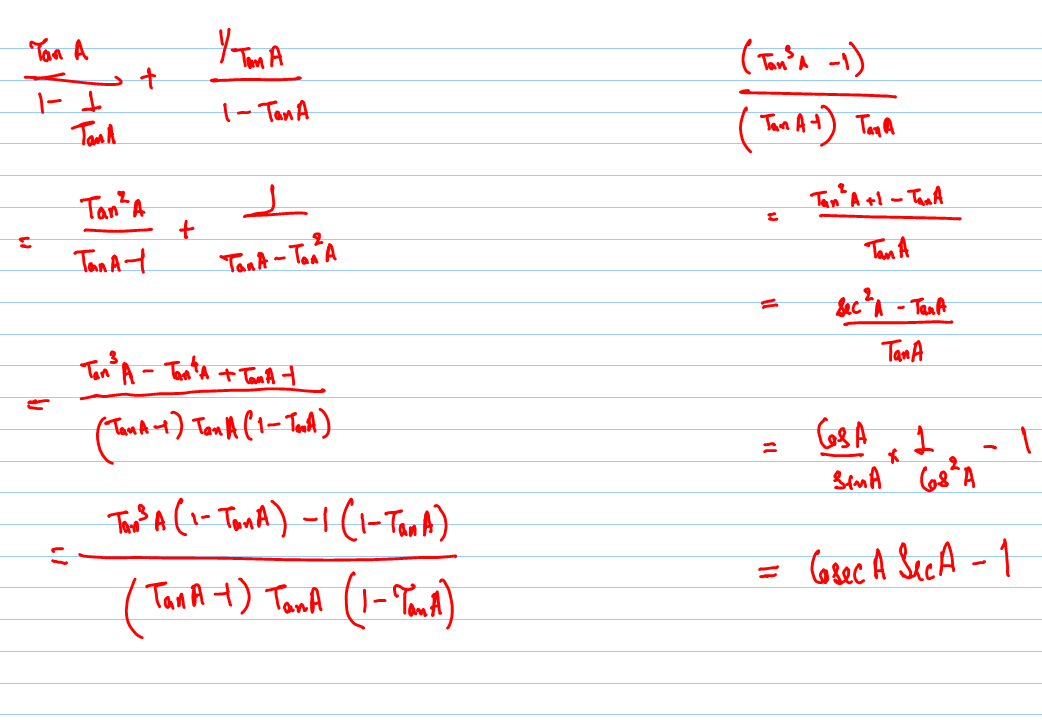 Tan A / (1 - 1/Tan A) + (1/Tan A) / (1 - Tan A)
= Tan²A / (Tan A - 1) + 1 / (Tan A - Tan²A)
= (Tan³A - Tan⁴A + Tan A - 1) / ((Tan A - 1) Tan A (1 - Tan A))
= (Tan³A (1 - Tan A) - 1 (1 - Tan A)) / ((Tan A - 1) Tan A (1 - Tan A))
(Tan³A - 1) / ((Tan A - 1) Tan A)
= (Tan²A + 1 - Tan A) / Tan A
= (Sec²A - Tan A) / Tan A
= Cos A / Sin A × 1 / Cos²A - 1
= Cosec A Sec A - 1